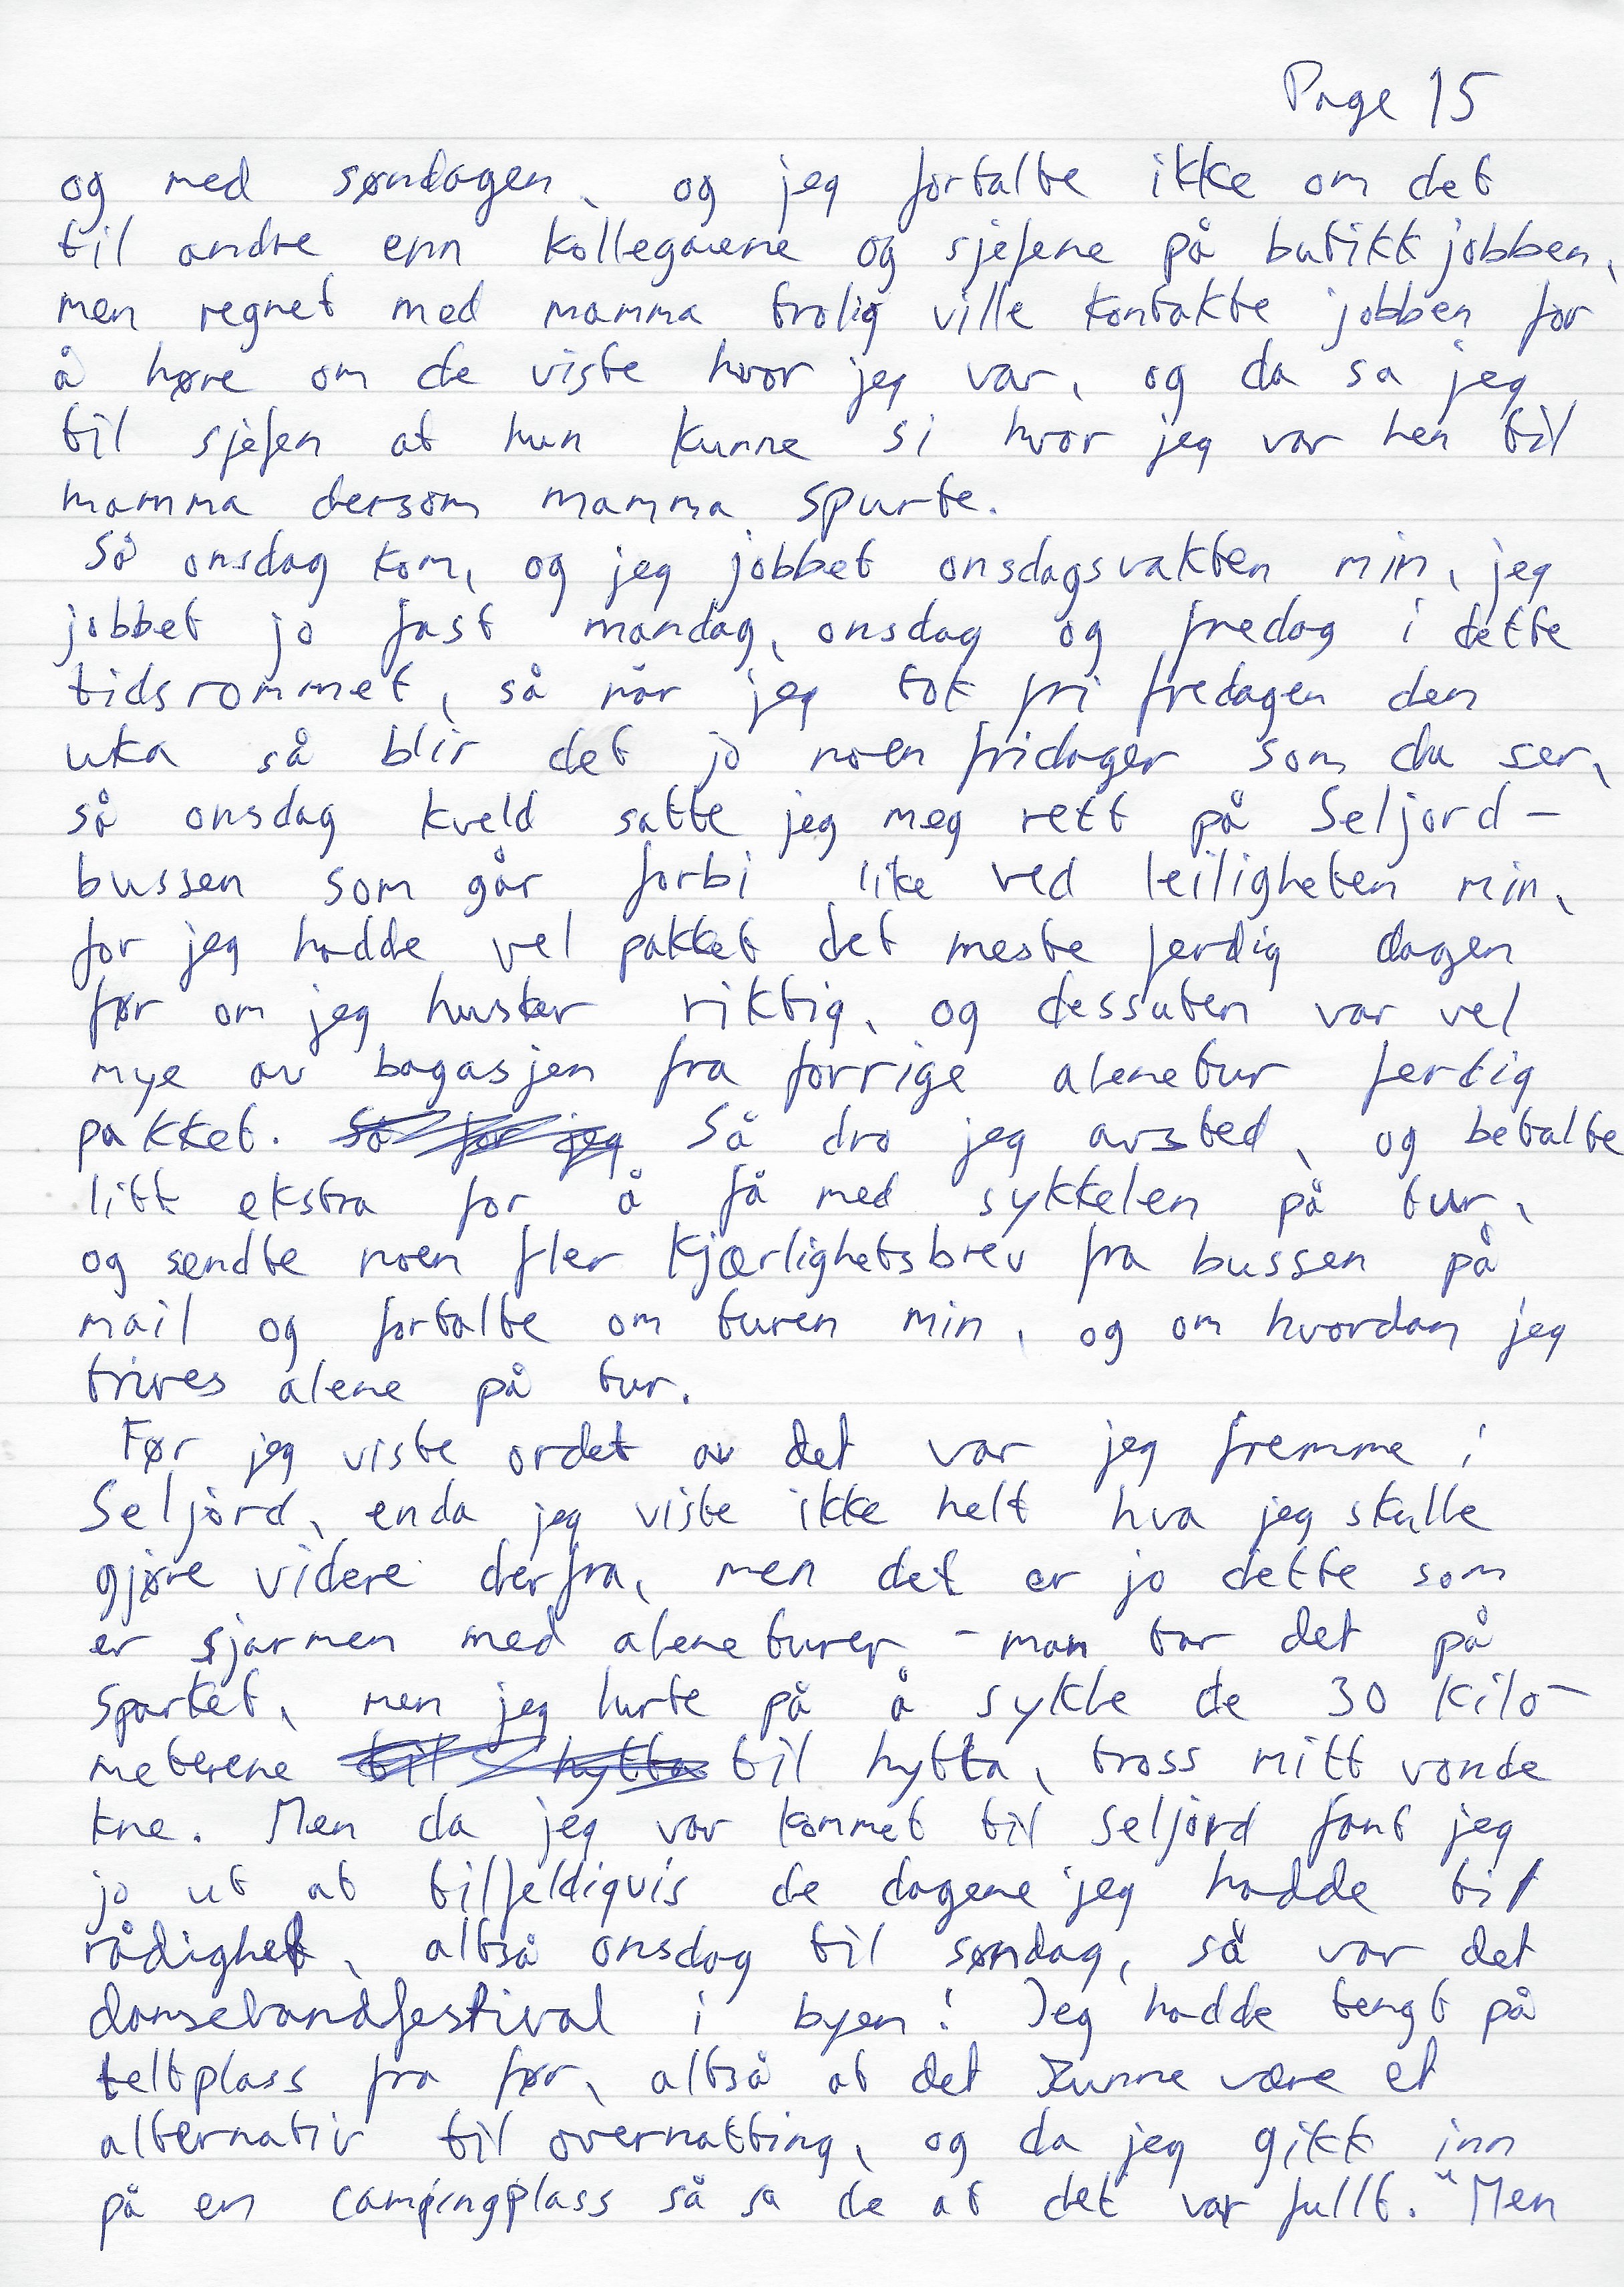 Page 15
og med søndagen, og jeg fortalte ikke om det
til andre enn kollegaene og sjefene på butikkjobben,
men regnet med mamma trolig ville kontakte jobben for
å høre om de viste hvor jeg var, og da sa jeg
til sjefen at hun kunne si hvor jeg var hen til
mamma dersom mamma spurte.
Så onsdag kom, og jeg jobbet onsdagsvakten min, jeg
jobbet jo fast mandag, onsdag og fredag i dette
tidsrommet, så når jeg tok fri fredagen den
uka så blir det jo noen fridager som du ser,
så onsdag kveld satte jeg meg rett på Seljord-
bussen som går forbi like ved leiligheten min,
for jeg hadde vel pakket det meste ferdig dagen
før om jeg husker riktig, og dessuten var vel
mye av bagasjen fra forrige alenetur ferdig
pakket. Så for jeg Så dro jeg avsted, og betalte
litt ekstra for å få med sykkelen på tur,
og sendte noen fler kjærlighetsbrev fra bussen på
mail og fortalte om turen min, og om hvordan jeg
trives alene på tur.
Før jeg viste ordet av det var jeg fremme i
Seljord, enda jeg viste ikke helt hva jeg skulle
gjøre videre derfra, men det er jo dette som
er sjarmen med aleneturer - man tar det på
sparket, men jeg lurte på å sykle de 30 kilo-
meterene til hytta til hytta, tross mitt vonde
kne. Men da jeg var kommet til Seljord fant jeg
jo ut at tilfeldigvis de dagene jeg hadde til
rådighet, altså onsdag til søndag, så var det
dansebandfestival i byen! Jeg hadde tengt på
teltplass fra før, altså at det kunne være et
alternativ til overnatting, og da jeg gikk inn
på en campingplass så sa de at det var fullt. "Men